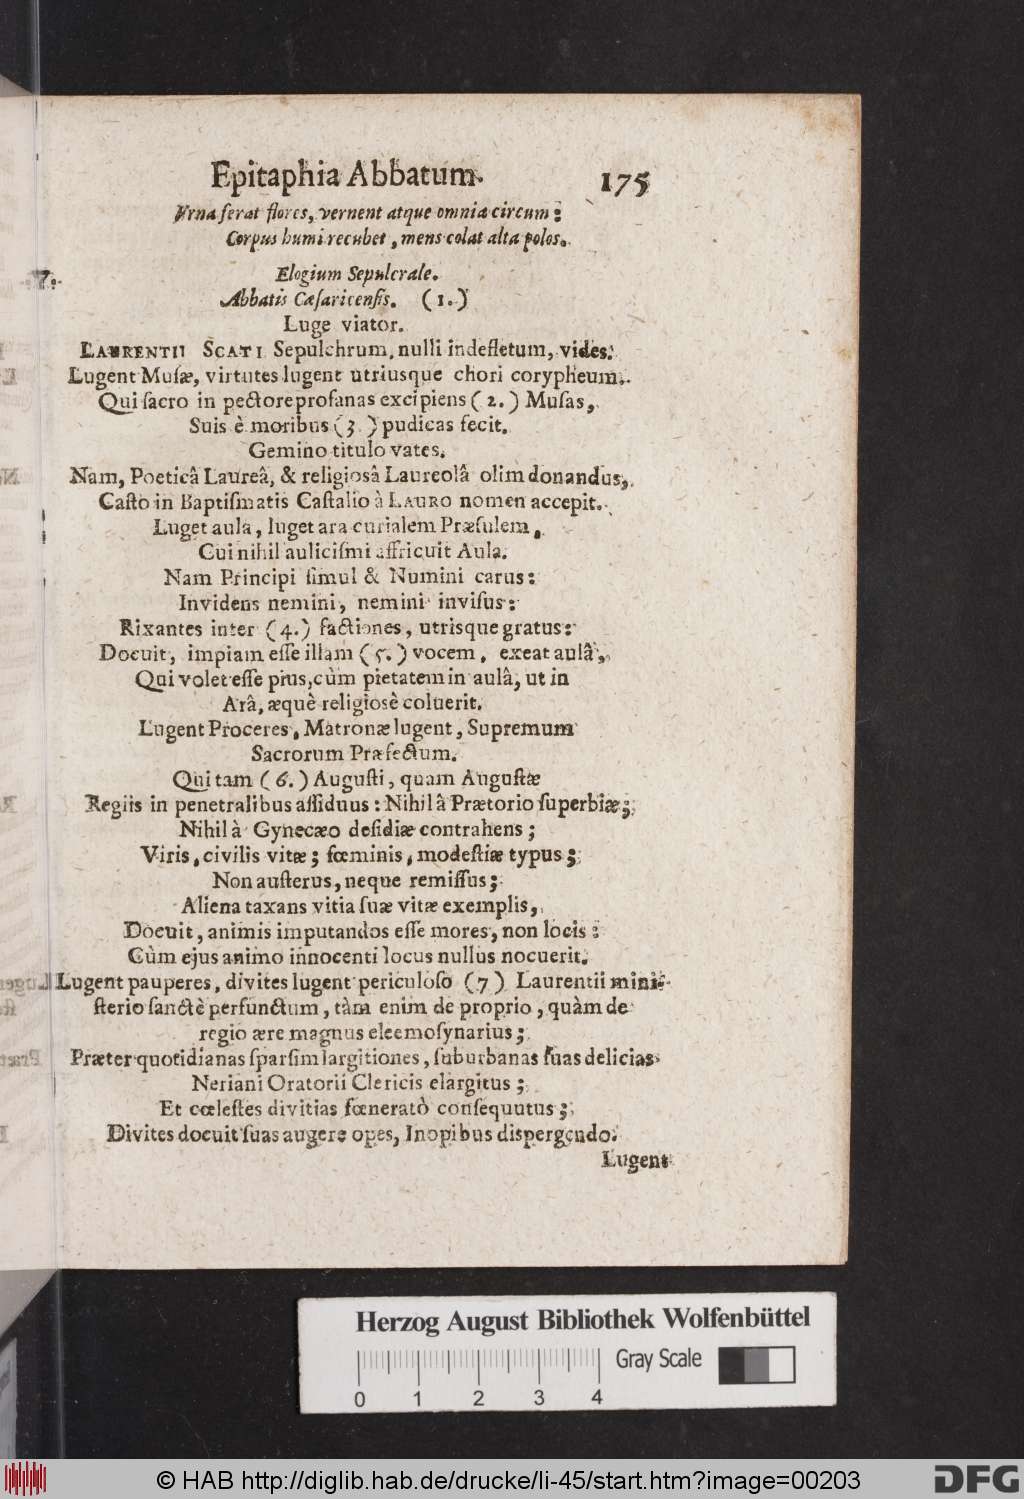 Epitaphia Abbatum. 175
Vrna ferat flores, vernent atque omnia circum:
Corpus humi recubet, mens colat alta polos.
7.
Elogium Sepulcrale.
Abbatis Cæsaricensis. (1.)
Luge viator.
LAURENTII SCATI Sepulchrum, nulli indefletum, vides.
Lugent Musæ, virtutes lugent utriusque chori corypheum,
Qui sacro in pectore profanas excipiens (2.) Musas,
Suis è moribus (3.) pudicas fecit.
Gemino titulo vates.
Nam, Poeticâ Laureâ, & religiosâ Laureolâ olim donandus,
Casto in Baptismatis Castalio à LAURO nomen accepit.
Luget aula, luget ara curialem Præsulem,
Cui nihil aulicismi affricuit Aula.
Nam Principi simul & Numini carus:
Invidens nemini, nemini invisus:
Rixantes inter (4.) factiones, utrisque gratus:
Docuit, impiam esse illam (5.) vocem, exeat aulâ,
Qui volet esse pius, cùm pietatem in aulâ, ut in
Arâ, æquè religiosè coluerit.
Lugent Proceres, Matronæ lugent, Supremum
Sacrorum Præfectum.
Qui tam (6.) Augusti, quam Augustæ
Regiis in penetralibus assiduus: Nihil â Prætorio superbiæ;
Nihil à Gynecæo desidiæ contrahens;
Viris, civilis vitæ; fœminis, modestiæ typus;
Non austerus, neque remissus;
Aliena taxans vitia suæ vitæ exemplis,
Docuit, animis imputandos esse mores, non locis:
Cùm ejus animo innocenti locus nullus nocuerit.
Lugent pauperes, divites lugent periculoso (7) Laurentii mini-
sterio sanctè perfunctum, tàm enim de proprio, quàm de
regio ære magnus eleemosynarius;
Præter quotidianas sparsim largitiones, suburbanas suas delicias
Neriani Oratorii Clericis elargitus;
Et cœlestes divitias fœneratò consequutus;
Divites docuit suas augere opes, Inopibus dispergendo.
Lugent
Herzog August Bibliothek Wolfenbüttel
Gray Scale
0 1 2 3 4
© HAB http://diglib.hab.de/drucke/li-45/start.htm?image=00203
DFG